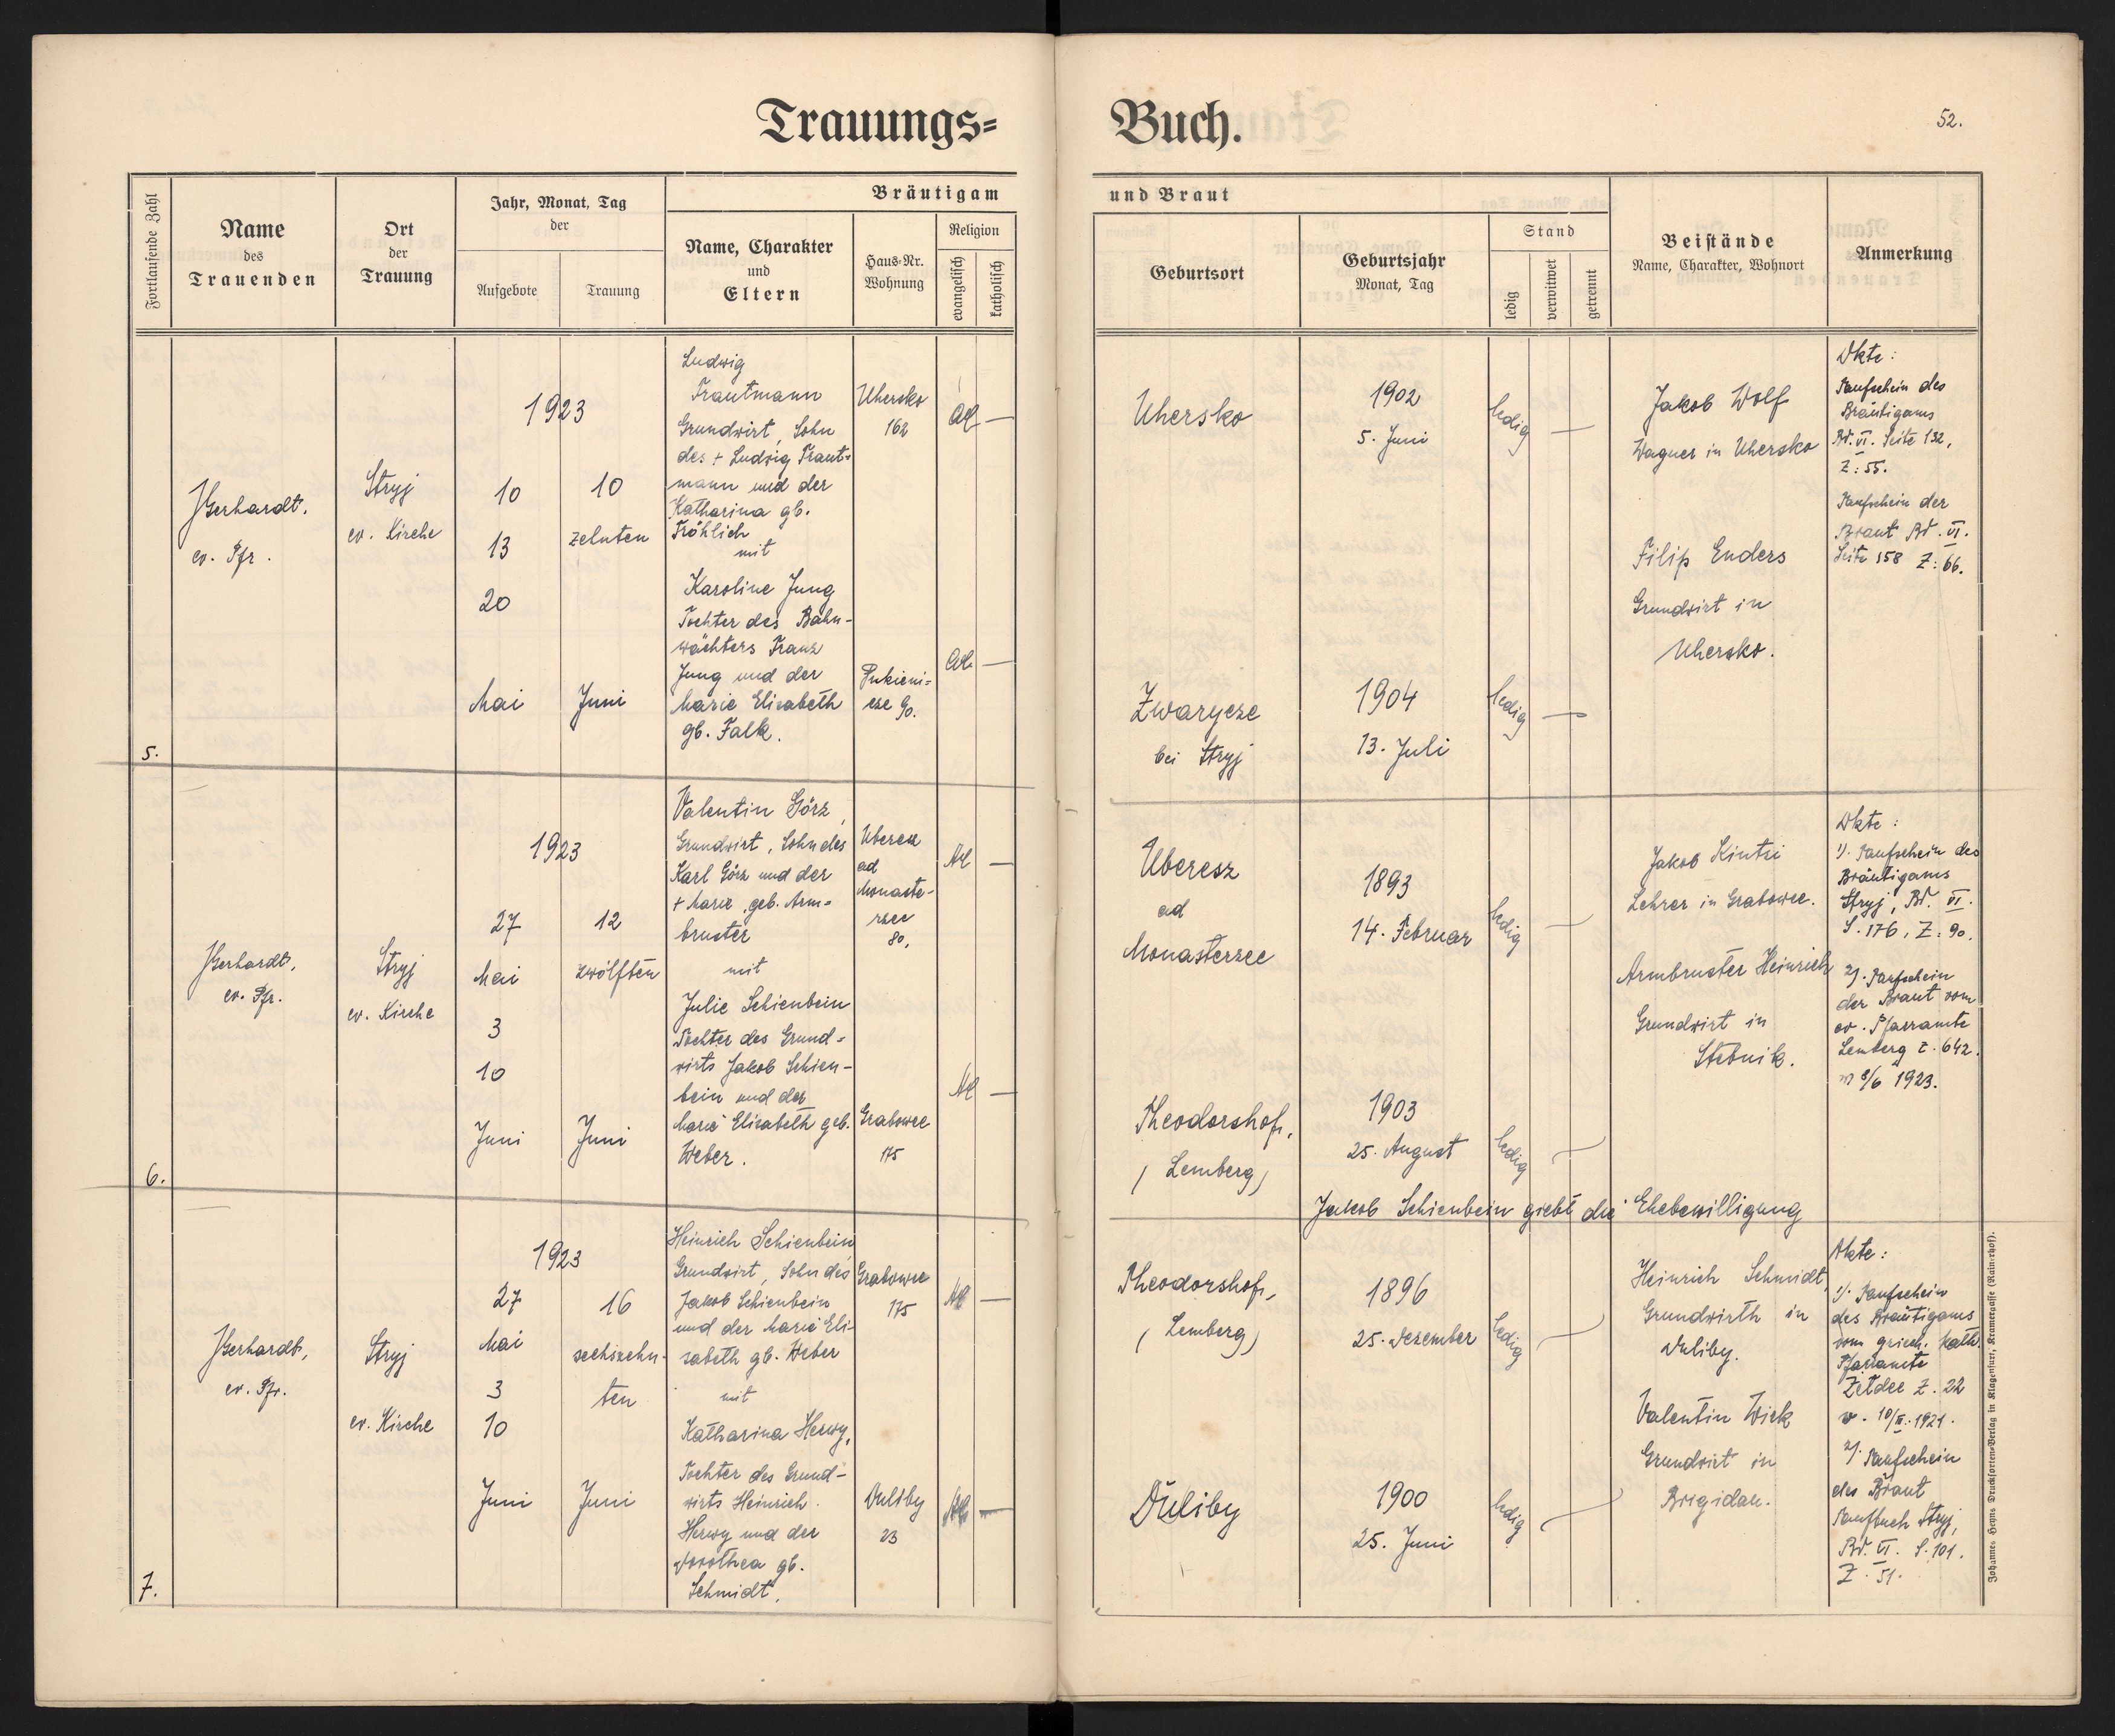 Trauungs=
Buch.
52.
Fortlaufende Zahl
Name
des
Trauenden
Ort
der
Trauung
Jahr, Monat, Tag
der
Aufgebote
Trauung
Bräutigam
Name, Charakter
und
Eltern
Haus-Nr.
Wohnung
Religion
evangelisch
katholisch
und Braut
Geburtsort
Geburtsjahr
Monat, Tag
Stand
ledig
verwitwet
getrennt
Beistände
Name, Charakter, Wohnort
Anmerkung
5.
JGerhardt.
ev. Pfr.
Stryj
ev. Kirche
1923
10
13
20
Mai
10
zehnten
Juni
Ludwig
Trautmann
Grundwirt, Sohn
des + Ludwig Traut=
mann und der
Katharina gb.
Fröhlich
mit
Karoline Jung
Tochter des Bahn-
wächters Franz
Jung und der
Marie Elisabeth
gb. Falk.
Uhersko
162
AC —
Pukieni=
cze 90.
AC —
Uhersko
1902
5. Juni
ledig —
Zwarycze
bei Stryj
1904
13. Juli
ledig —
Jakob Wolf
Wagner in Uhersko
Filip Enders
Grundwirt in
Uhersko.
Akte:
Taufschein des
Bräutigams
Bd. VI. Seite 132,
Z: 55.
Taufschein der
Braut Bd. VI.
Seite 158 Z: 66.
6.
JGerhardt,
ev. Pfr.
Stryj
ev. Kirche
1923
27
Mai
3
10
Juni
12
zwölften
Juni
Valentin Görz,
Grundwirt, Sohn des
Karl Görz und der
+ Marie, geb. Arm=
bruster
mit
Julie Schienbein
Tochter des Grund=
wirts Jakob Schien-
bein und der
Marie Elisabeth geb.
Weber.
ad
Monaste-
rzec
80,
AC —
Grabowce
175
AC —
Uberesz
ad
Monasterzec
1893
14. Februar
ledig —
Theodorshof,
(Lemberg)
1903
25. August
ledig —
Jakob Kintzi
Lehrer in Grabowce.
Armbruster Heinrich
Grundwirt in
Stebnik.
Akte:
1). Taufschein des
Bräutigams
Stryj, Bd. VI.
S. 176, Z: 90.
2). Taufschein
der Braut vom
ev. Pfarramte
Lemberg Z. 642.
8/6 1923.
Jakob Schienbein giebt die Ehebewilligung
7.
JGerhardt,
ev. Pfr.
Stryj
ev. Kirche
1923
27
Mai
3
10
Juni
16
sechszehn-
ten
Juni
Heinrich Schienbein
Grundwirt, Sohn des
Jakob Schienbein
und der Marie Eli-
sabeth gb. Weber
mit
Katharina Herwy,
Tochter des Grund-
wirts Heinrich
Herwy und der
Dorothea gb.
Schmidt.
Grabowce
175
AC —
Duliby
23
AC —
Theodorshof,
(Lemberg)
1896
25. Dezember
ledig —
Duliby
1900
25. Juni
ledig —
Heinrich Schmidt,
Grundwirth in
Duliby.
Valentin Wick
Grundwirt in
Brigidau.
Akte:
1). Taufschein
des Bräutigams
vom griech. kath.
Pfarramte
Z. 22
v. 10/II. 1921.
2). Taufschein
der Braut
Taufbuch Stryj,
Bd. VI. S. 101.
Z. 51.
Johannes Heyns Drucksorten-Verlag in Klagenfurt, Kramergasse (Rainerhof).